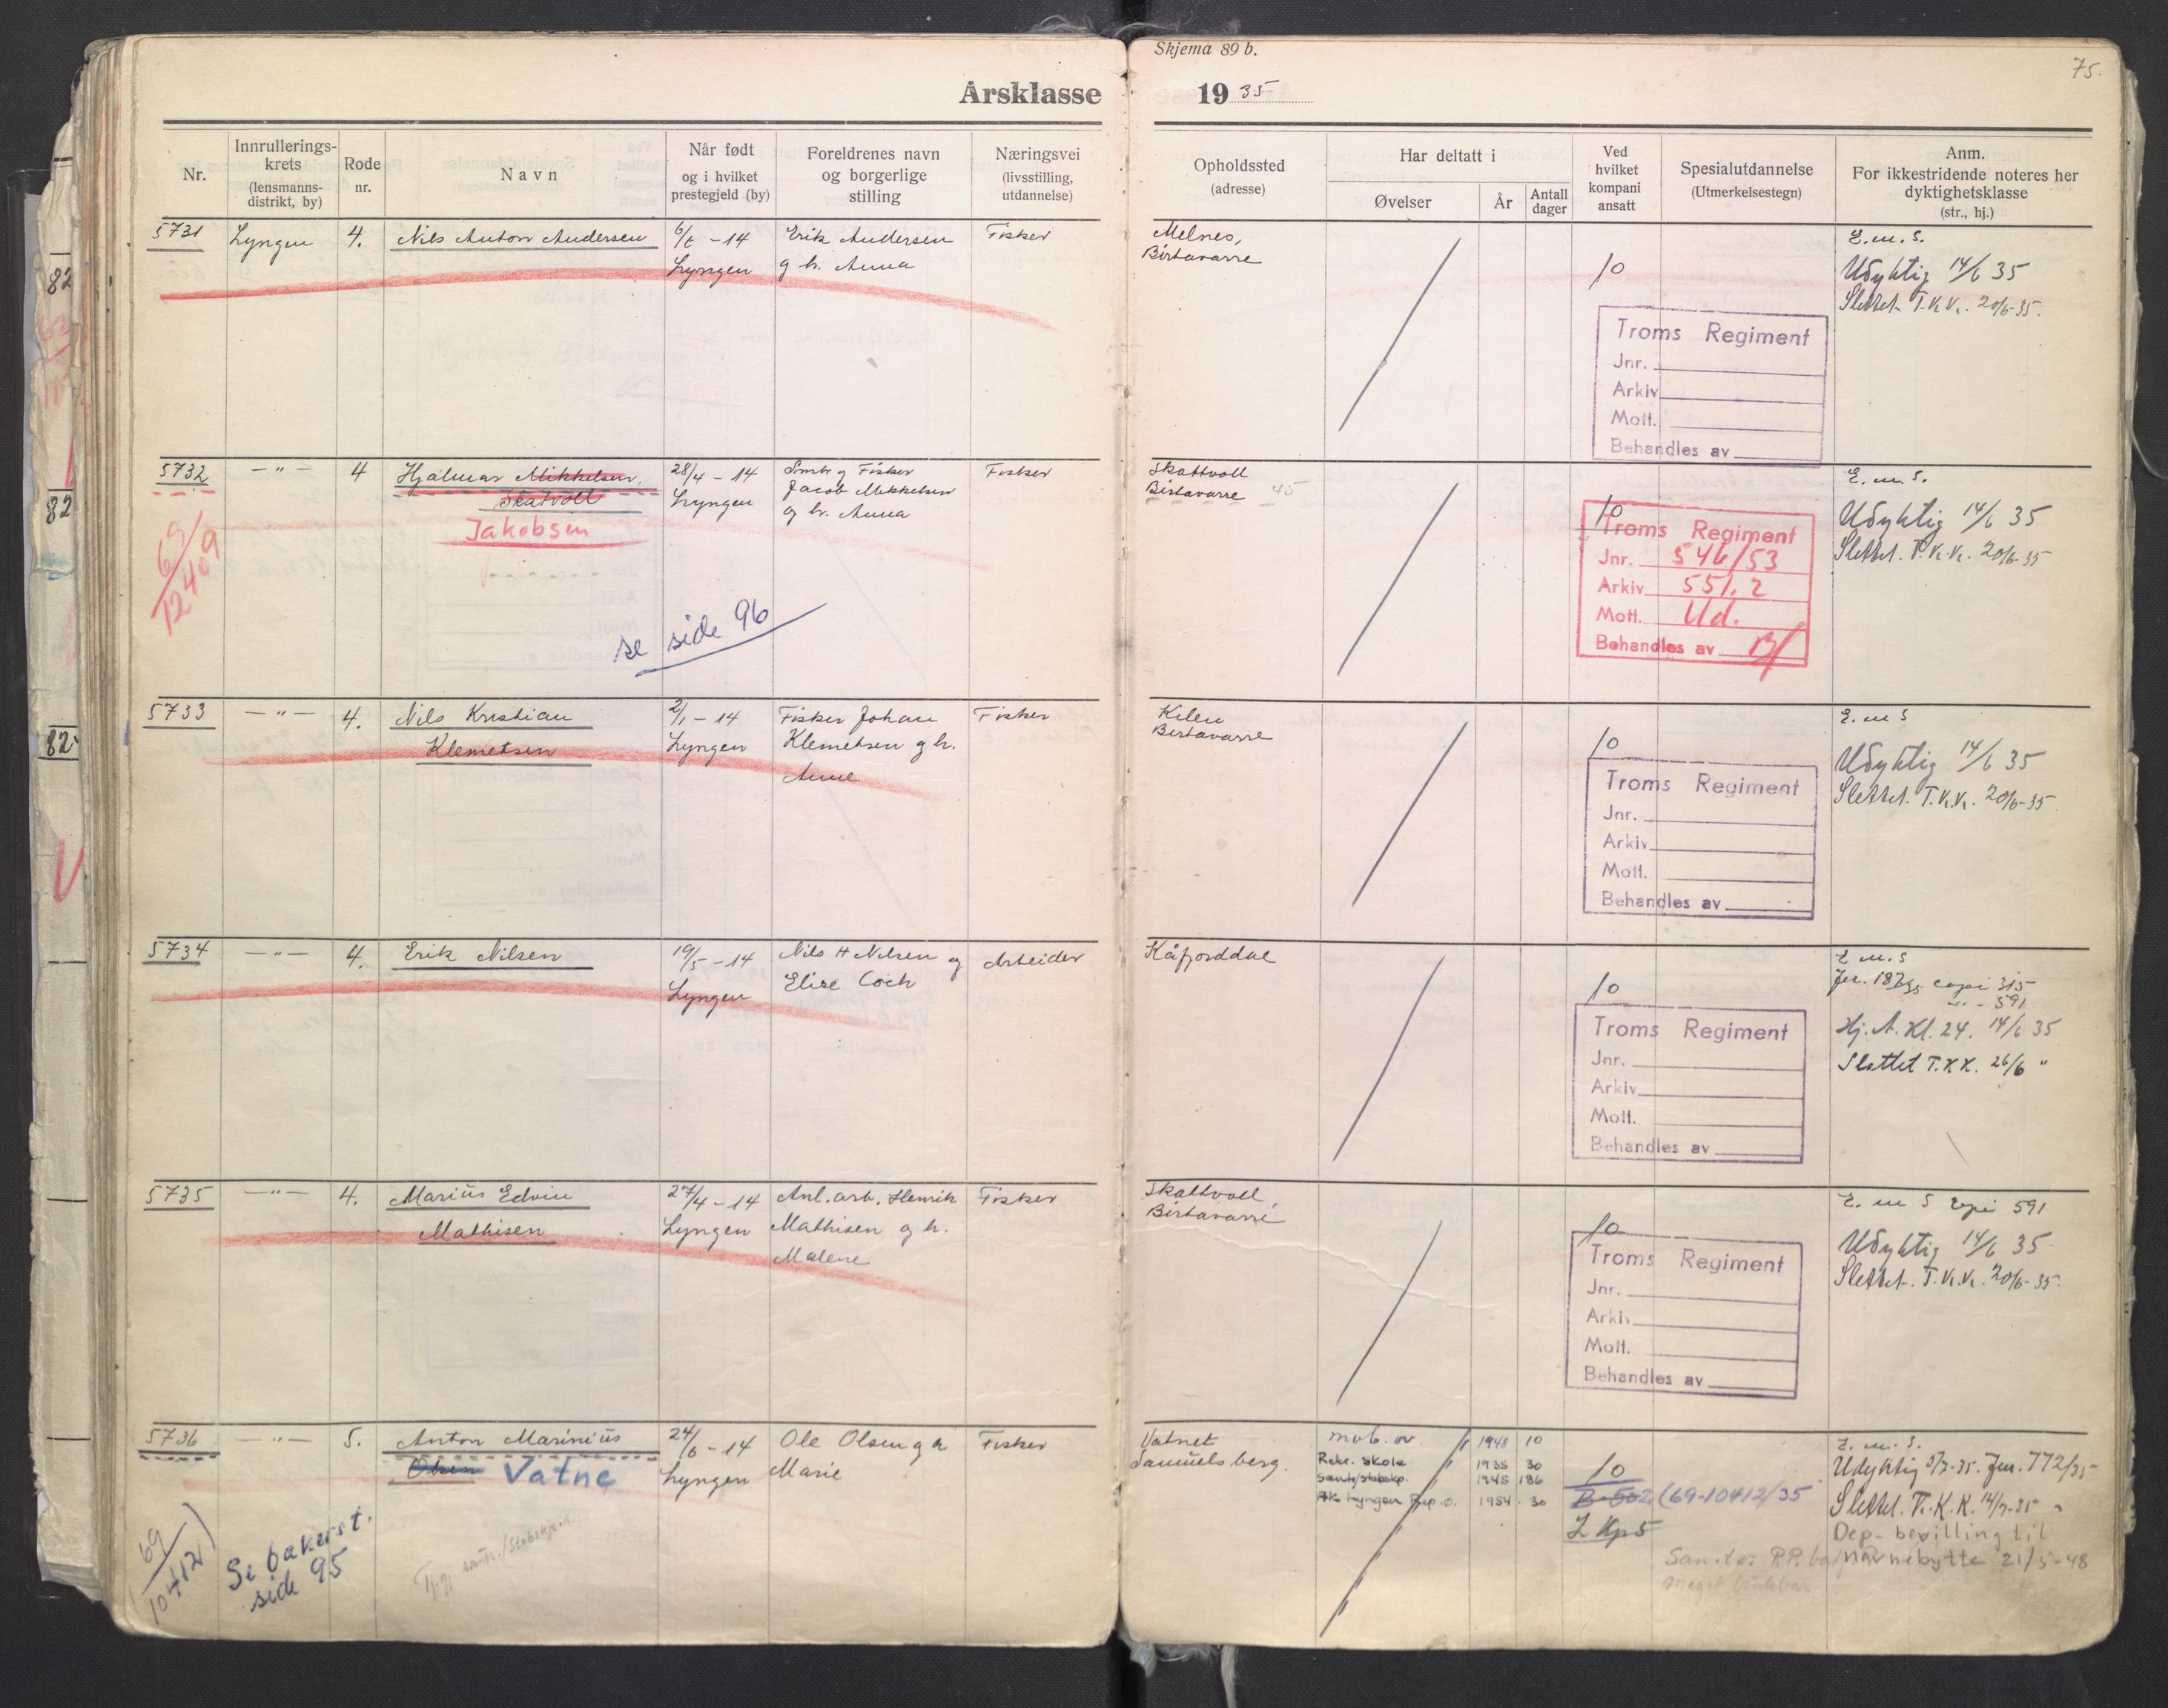 Skjema 89 b.
75.
Årsklasse 1935
Nr.
Innrullerings-
krets
(lensmanns-
distrikt, by)
Rode
nr.
Navn
Når født
og i hvilket
prestegjeld (by)
Foreldrenes navn
og borgerlige
stilling
Næringsvei
(livsstilling,
utdannelse)
Opholdssted
(adresse)
Har deltatt i
Øvelser
År
Antall
dager
Ved
hvilket
kompani
ansatt
Spesialutdannelse
(Utmerkelsestegn)
Anm.
For ikkestridende noteres her
dyktighetsklasse
(str., hj.)
5731 Lyngen 4. Nils Anton Andersen 6/6 - 14 Erik Andersen Fisker
Lyngen g h. Anna
Melnes,
Birtavarre
10
E. m. S.
Udyktig 14/6 35
Slettet T.K.K. 20/6-35.
Troms Regiment
Jnr.
Arkiv
Mott.
Behandles av
82
5732 -"- 4 Hjalmar Mikkelsen 28/4 - 14 Smbr og Fisker Fisker
Skatvoll Lyngen Jacob Mikkelsen
Jakobsen og h. Anna
69/12409
se side 96
Skattvoll
Birtavarre 45
10
E. m. S.
Udyktig 14/6 35
Slettet. T.K.K. 20/6-35
Troms Regiment
Jnr. 546/53
Arkiv 551.2
Mott. Ud.
Behandles av
82
5733 -"- 4. Nils Kristian 2/1 - 14 Fisker Johan Fisker
Klemetsen Lyngen Klemetsen g h.
Anne
Kilen
Birtavarre
10
E. m S
Udyktig 14/6 35
Slettet. T.K.K. 20/6-35
Troms Regiment
Jnr.
Arkiv
Mott.
Behandles av
82
5734 -"- 4. Erik Nilsen 19/5 - 14 Nils H Nilsen og Arbeider
Lyngen Elise Coch
Kåfjorddal
10
E m. S
Jnr. 187/35 copi 315
-"- - 591
Hj. A. Kl. 24. 14/6 35
Slettet T.K.K. 26/6 "
Troms Regiment
Jnr.
Arkiv
Mott.
Behandles av
5735 -"- 4. Marius Edvin 27/4 - 14 Anl. arb. Henrik Fisker
Mathisen Lyngen Mathisen og h.
Malene
Skattvoll,
Birtavarre
10
E. m S Copi 591
Udyktig 14/6 35
Slettet. T.K.K. 20/6-35.
Troms Regiment
Jnr.
Arkiv
Mott.
Behandles av
5736 -"- 5. Anton Marinius 24/6 - 14 Ole Olsen g h Fisker
Olsen Vatne Lyngen Marie
69/10412
Se bakerst.
side 95
Vatnet
Samuelsberg.
mob. øv. 1948 10
Rekr. skole 1935 30
Sanit/stabskp. 1945 186
HK Lyngen Rep. ø. 1954 30
10
B-502 (69-10412/35
2 Kp5
E. m. S.
Udyktig 5/7-35. Jnr. 772/35
Slettet. T.K.K. 14/7-35
Dep. bevilling til
navnebytte 21/5-48